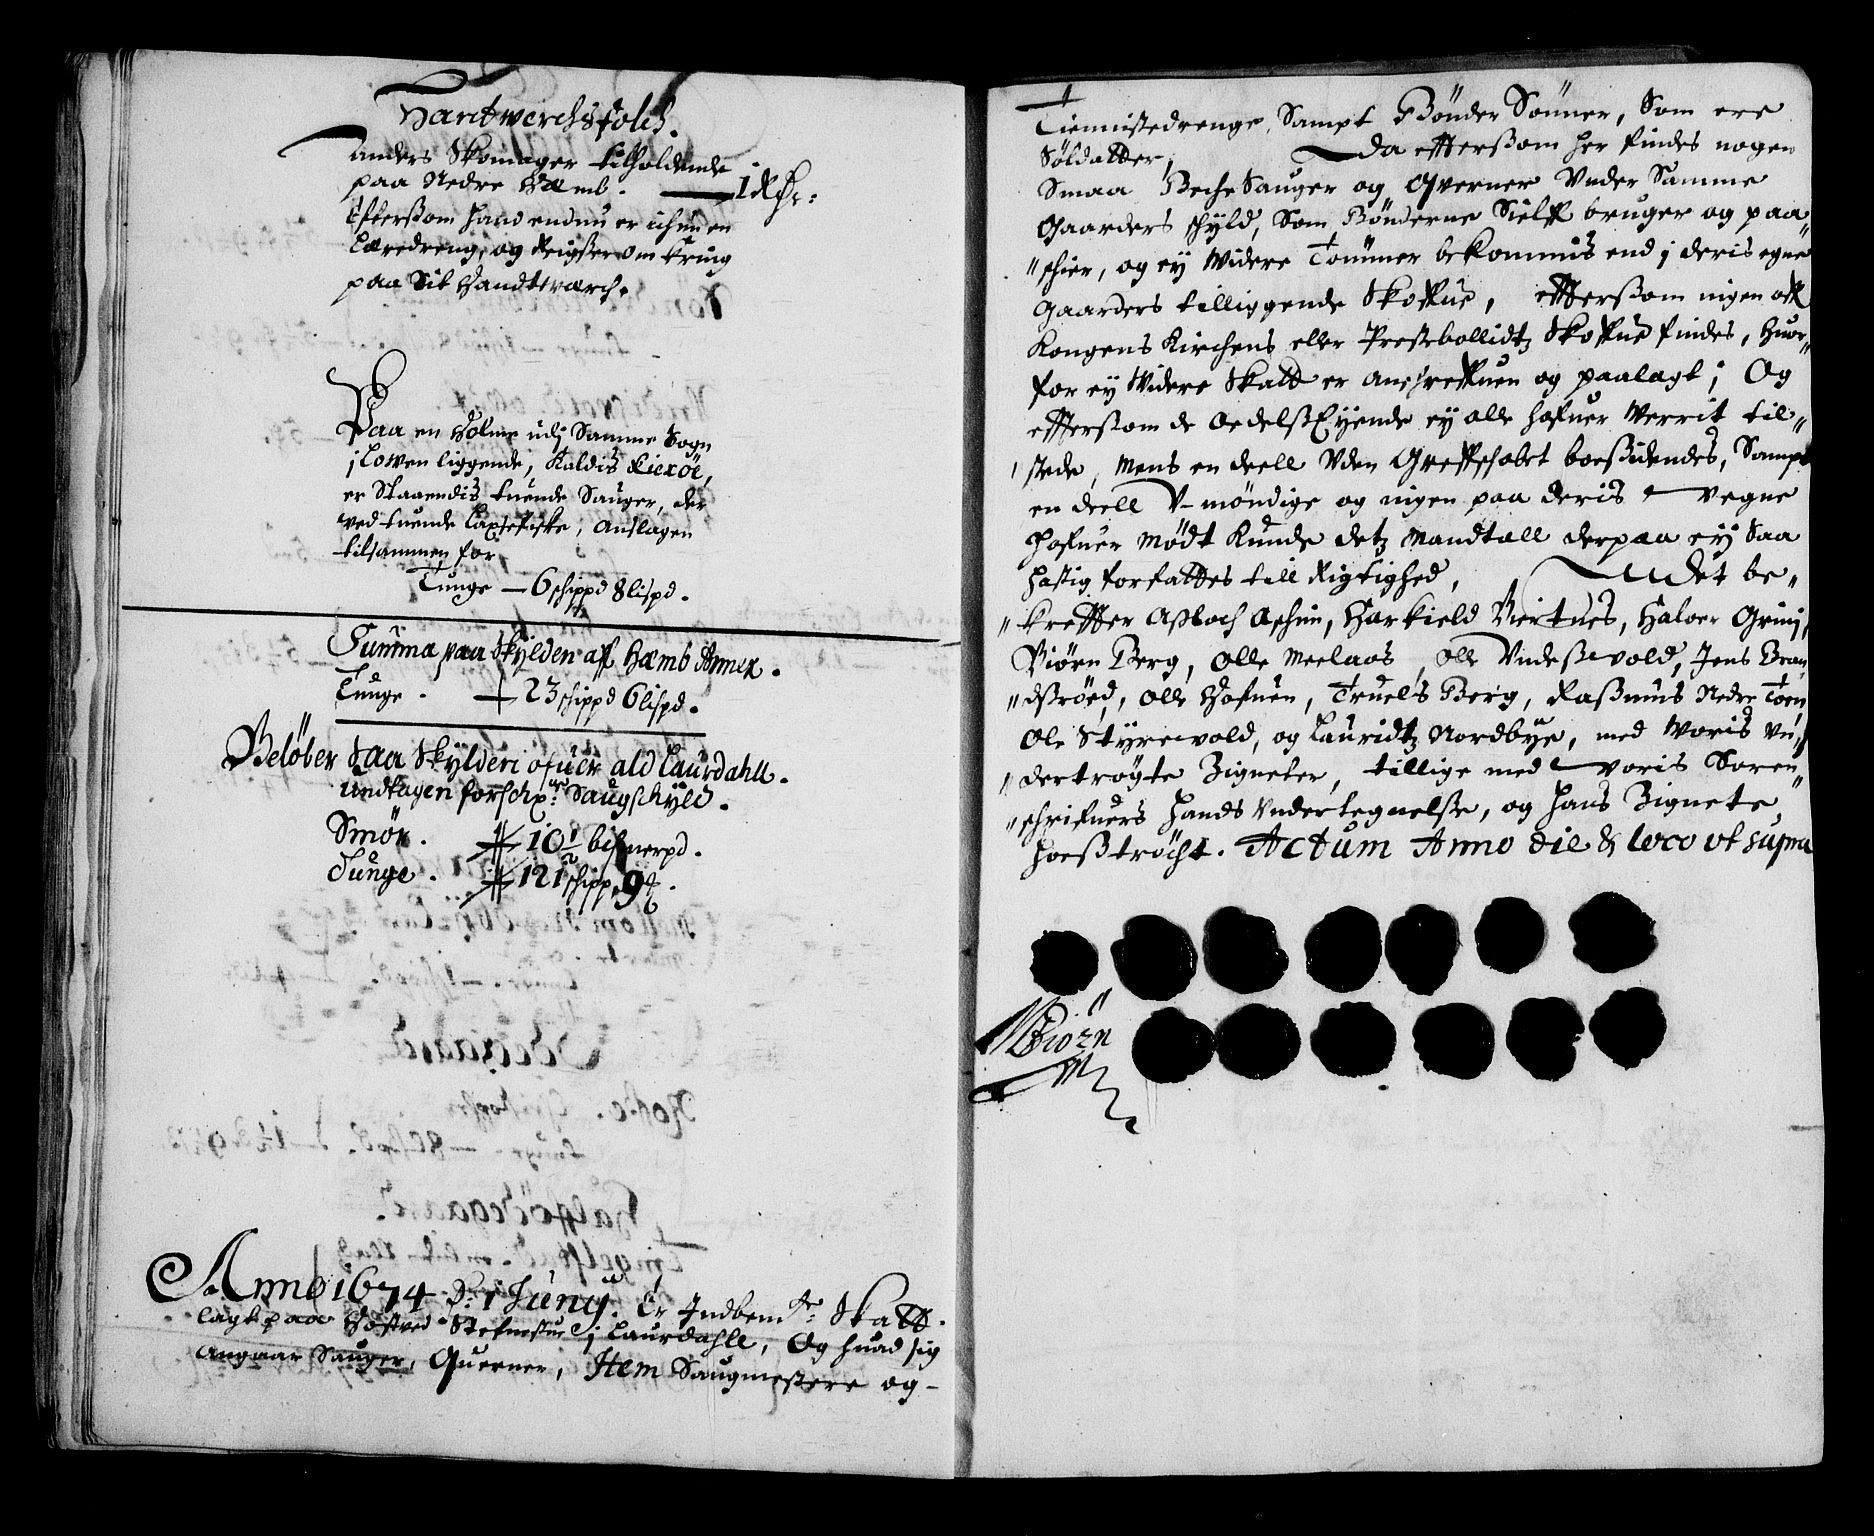 Hantwerchsfolch.
Anders Skomager tilholdende
paa Nedre Hæmb. — 1 Rdr:
Efterßom hand endnu er ichun en
Læredreng, og Reigßer om kring
paa Sit Handtwærch.
Paa en Holme udj Samme Sogn
j Lowen liggende, Kaldis Kieröe,
er Staaendis tuende Sauger, der
ved tuende Laxefiske, Anslagen
tilsammen for
Tunge — 6 schippd 8 lispd.
Summa paa Skylden aff Hæmb Annex.
Tunge . — 23 schippd 6 lispd.
Belöber Saa Skylden ofuer ald Laurdahll.
undtagen forschr: Saugschyld.
Smör . 10½ bißmerpd.
Tunge . 121 schipp, 9
Anno 1674 d: 1 Junij. Er Jndbem:te Skatt.
lagt paa Höstved Stefnestue j Laurdahll, Og huad sig
angaar Sauger, Querner, Item Saugmestere og-
Tiennistedrenge, Sampt Bönder Sönner, Som ere
Söldatter, Da effterßom her findes nogen
Smaa BecheSauger og Qverner Vnder Samme
Gaarders schyld, Som Bönderne Sielff bruger og paa"
"schier, og ey Widere Tömmer bekommis end j deris egne
Gaarders tilliggende Skoffue, effterßom nigen aff
Kongens Kirchens eller Prestebollidtz Skoffue findes, huor"
for ey Widere Skatt er anschreffuen og paalagt; Og
effterßom de OedelßEyende ey alle hafuer Werrit til"
stede, Mens en deell Vden Greffschabet boeßidendes, Sampt
en deell V-möndige og nigen paa deris vegne
hafuer Mödt Kunde detz Mandtall derpaa ey Saa
hastig forfattes till Rigtighed, Det be"
"krefter Aßloch Aschim, Harkield Biertnes, Haloer Grinj,
Biörn Berg, Olle Meelaas, Olle Vndeßevold, Jens Bran
"dßröed, Olle Hafuen, Truels Berg, Raßmus Nedre Toen,
Ole Styrewold, og Lauridtz Nordbye, med Woris Vn"
"dertrögte Zigneter, tillige med Woris Soren"
"schrifuers Hands Vndertegnelße, og Hans Zignete
hoeßtröcht. Actum Anno die & loco ut supra
NBiörn